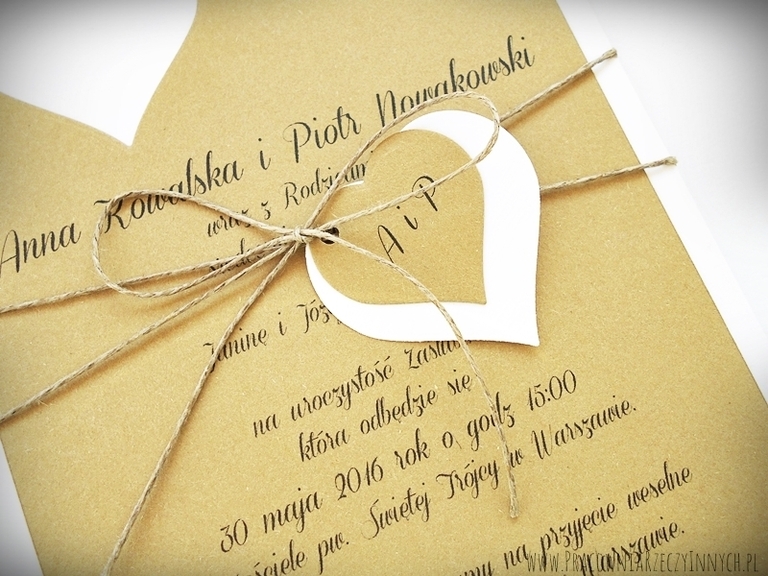 Anna Kowalska i Piotr Nowakowski
wraz z
A i P
Janinę i
na uroczystość
która odbędzie się
30 maja 2016 rok o godz 15:00
pw. Świętej Trójcy w Warszawie.
na przyjęcie weselne
Warszawie.
www.PracowniaRzeczyInnych.pl